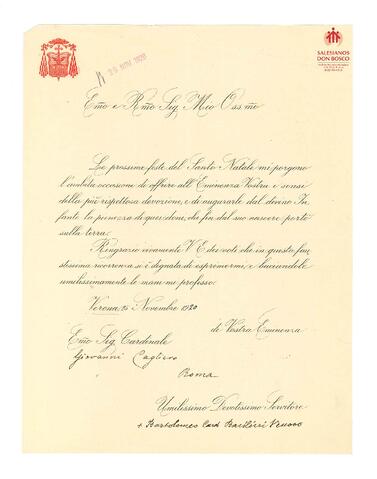 29 NOV. 1920
SALESIANOS
DON BOSCO
Emo e Rmo Sig. Mio Ossmo
Le prossime feste del Santo Natale mi porgono
l'ambita occasione di offrire all'Eminenza Vostra i sensi
della più rispettosa devozione, e di augurarle dal divino In-
fante la pienezza di quei doni, che fin dal suo nascere portò
sulla terra.
Ringrazio vivamente V. E. dei voti che in questa fau-
stissima ricorrenza si è degnata di esprimermi, e baciandole
umilissimamente le mani mi professo
Verona 26 Novembre 1920
di Vostra Eminenza
Emo Sig. Cardinale
Giovanni Cagliero
Roma
Umilissimo Devotissimo Servitore
+ Bartolomeo Card. Bacilieri Vescovo